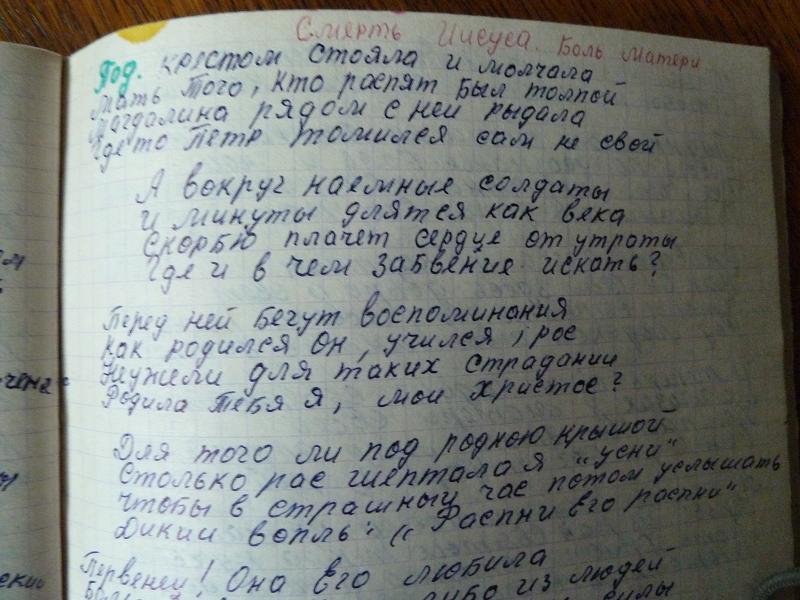 Смерть Иисуса. Боль матери
Под. крестом стояла и молчала
Мать Того, Кто распят был толпой
Магдалина рядом с ней рыдала
Где то Петр томился сам не свой
А вокруг наемные солдаты
И минуты длятся как века
Скорбю плачет сердце от утраты
Где и в чем забвение искать?
Перед ней бегут воспоминания
Как родился Он, учился, рос
Неужели для таких страдании
Родила Тебя я, мой Христос?
Для того ли под родною крышой
Столько рас шептала я "усни"
Чтобы в страшный час потом услышать
Дикий вопль: "Распни Его распни"
Первенец! Она Его любила
либо из людей